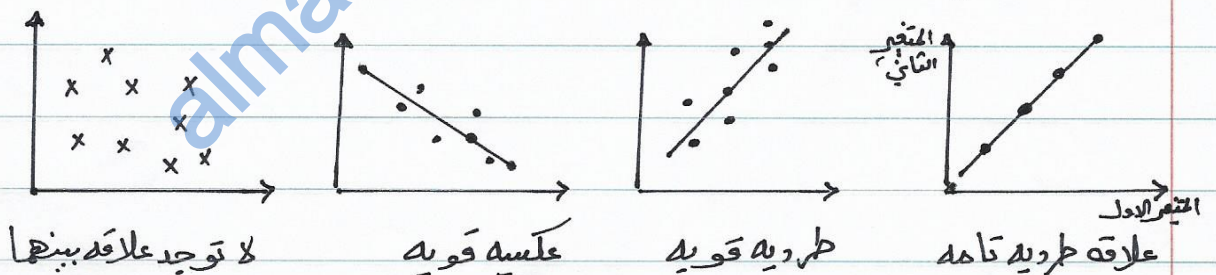 المتغير
الثاني
المتغير الاول
علاقه طرديه تامه
طرديه قويه
عكسيه قويه
لا توجد علاقه بينهما
alma